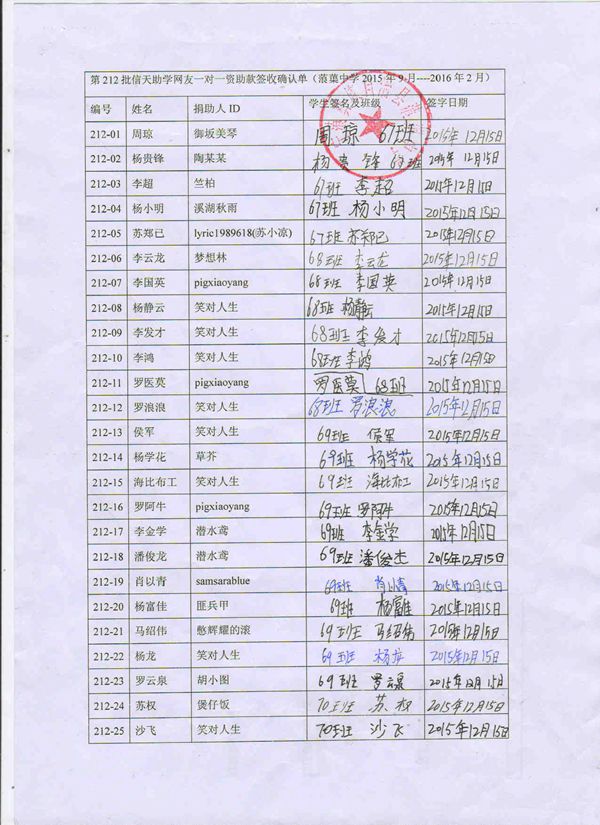 第212批信天助学网友一对一资助款签收确认单（落菓中学2015年9月----2016年2月）
编号 姓名 捐助人 ID 学生签名及班级 签字日期
212-01 周琼 御坂美琴 周琼 67班 2015年12月15日
212-02 杨贵锋 陶某某 杨贵锋 67班 2015年12月15日
212-03 李超 竺柏 67班 李超 2015年12月15日
212-04 杨小明 溪湖秋雨 67班 杨小明 2015年12月15日
212-05 苏郑已 lyric1989618(苏小凉) 67班 苏郑已 2015年12月15日
212-06 李云龙 梦想林 68班 李云龙 2015年12月15日
212-07 李国英 pigxiaoyang 68班 李国英 2015年12月15日
212-08 杨静云 笑对人生 68班 杨静云 2015年12月15日
212-09 李发才 笑对人生 68班 李发才 2015年12月15日
212-10 李鸿 笑对人生 68班 李鸿 2015年12月15日
212-11 罗医莫 pigxiaoyang 罗医莫 68班 2015年12月15日
212-12 罗浪浪 笑对人生 68班 罗浪浪 2015年12月15日
212-13 侯军 笑对人生 69班 侯军 2015年12月15日
212-14 杨学花 草芥 69班 杨学花 2015年12月15日
212-15 海比布工 笑对人生 69班 海比布工 2015年12月15日
212-16 罗阿牛 pigxiaoyang 69班 罗阿牛 2015年12月15日
212-17 李金学 潜水鸢 69班 李金学 2015年12月15日
212-18 潘俊龙 潜水鸢 69班 潘俊杰 2015年12月15日
212-19 肖以青 samsarablue 69班 肖以青 2015年12月15日
212-20 杨富佳 匪兵甲 69班 杨富佳 2015年12月15日
212-21 马绍伟 憨辉耀的滚 69班 马绍伟 2015年12月15日
212-22 杨龙 笑对人生 69班 杨龙 2015年12月15日
212-23 罗云泉 胡小图 69班 罗云泉 2015年12月15日
212-24 苏权 煲仔饭 70班 苏权 2015年12月15日
212-25 沙飞 笑对人生 70班 沙飞 2015年12月15日